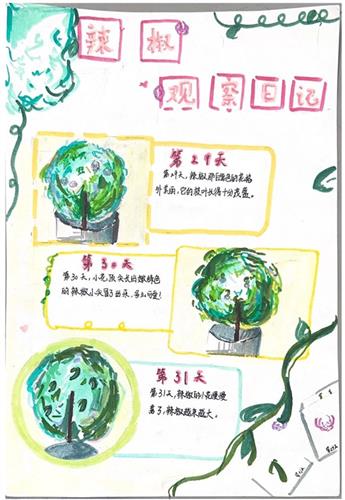 辣椒
观察日记
第29天
第29天,辣椒那白色的花格
外美丽,它的枝叶长得十分茂盛。
第30天
第30天,小花顶头长出嫩绿色
的辣椒小尖冒了出来,多么可爱!
第31天
第31天,辣椒的小花慢慢
落了,辣椒越来越大。